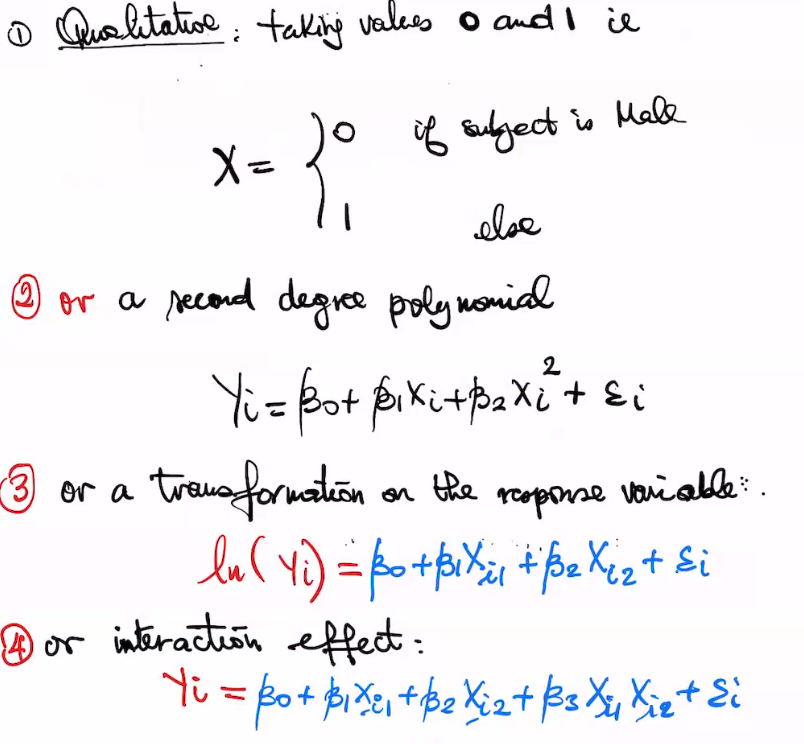 ① Qualitative : taking values 0 and 1 ie
X = { 0 if subject is Male
1 else
② or a second degree polynomial
Yi = β0 + β1Xi + β2Xi² + εi
③ or a transformation on the response variable: .
ln(Yi) = β0 + β1Xi1 + β2Xi2 + εi
④ or interaction effect :
Yi = β0 + β1Xi1 + β2Xi2 + β3Xi1Xi2 + εi